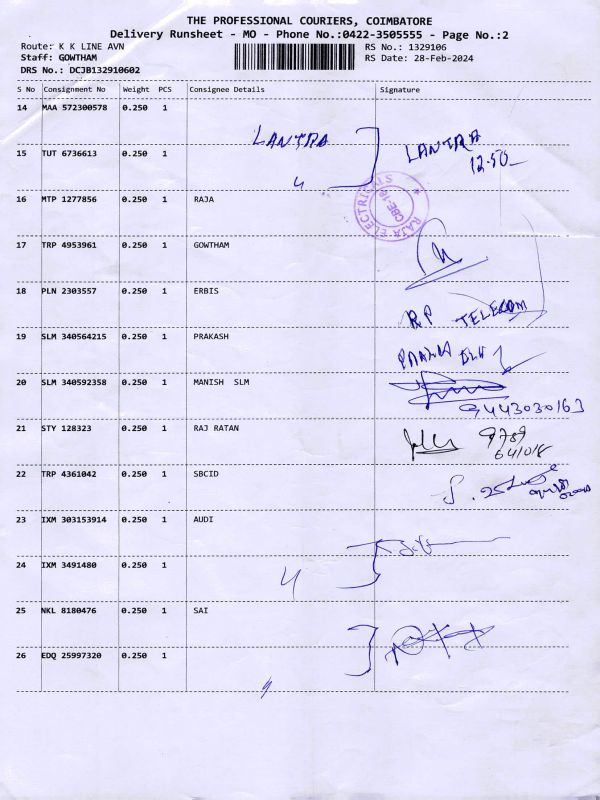 THE PROFESSIONAL COURIERS, COIMBATORE
Delivery Runsheet - MO - Phone No.:0422-3505555 - Page No.:2
Route: K K LINE AVN
RS No.: 1329106
Staff: GOWTHAM
RS Date: 28-Feb-2024
DRS No.: DCJB132910602
S No Consignment No Weight PCS Consignee Details Signature
14 MAA 572300578 0.250 1
LANTRA
LANTRA
12.50
15 TUT 6736613 0.250 1
4
16 MTP 1277856 0.250 1 RAJA
RAJA ELECTRICALS CBE-18
17 TRP 4953961 0.250 1 GOWTHAM
18 PLN 2303557 0.250 1 ERBIS
RP TELECOM
19 SLM 340564215 0.250 1 PRAKASH
20 SLM 340592358 0.250 1 MANISH SLM
9443030163
21 STY 128323 0.250 1 RAJ RATAN
9789
641018
22 TRP 4361042 0.250 1 SBCID
23 IXM 303153914 0.250 1 AUDI
24 IXM 3491480 0.250 1
4
25 NKL 8180476 0.250 1 SAI
26 EDQ 25997320 0.250 1